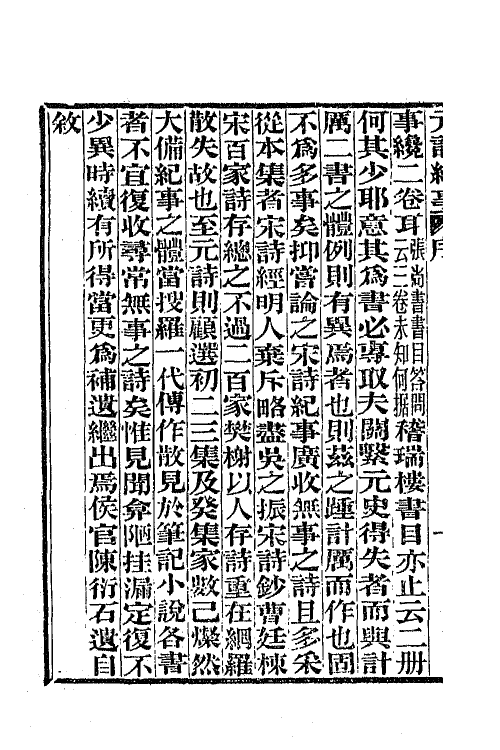 元詩紀事 序 一
事纔二卷耳張尚書書目答問云二卷未知何據稽瑞樓書目亦止云二册
何其少耶意其爲書必專取夫關繫元史得失者而與計
厲二書之體例則有異焉者也則茲之踵計厲而作也固
不爲多事矣抑嘗論之宋詩紀事廣收無事之詩且多采
從本集者宋詩經明人棄斥略盡吳之振宋詩鈔曹廷棟
宋百家詩存總之不過二百家樊榭以人存詩重在網羅
散失故也至元詩則顧選初二三集及癸集家數已燦然
大備紀事之體當搜羅一代傳作散見於筆記小說各書
者不宜復收尋常無事之詩矣惟見聞弇陋挂漏定復不
少異時續有所得當更爲補遺繼出焉侯官陳衍石遺自
敘